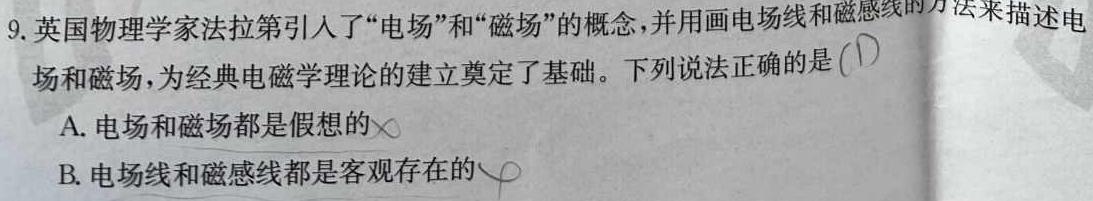 9. 英国物理学家法拉第引入了“电场”和“磁场”的概念,并用画电场线和磁感线的方法来描述电
场和磁场,为经典电磁学理论的建立奠定了基础。下列说法正确的是(D
A. 电场和磁场都是假想的×
B. 电场线和磁感线都是客观存在的